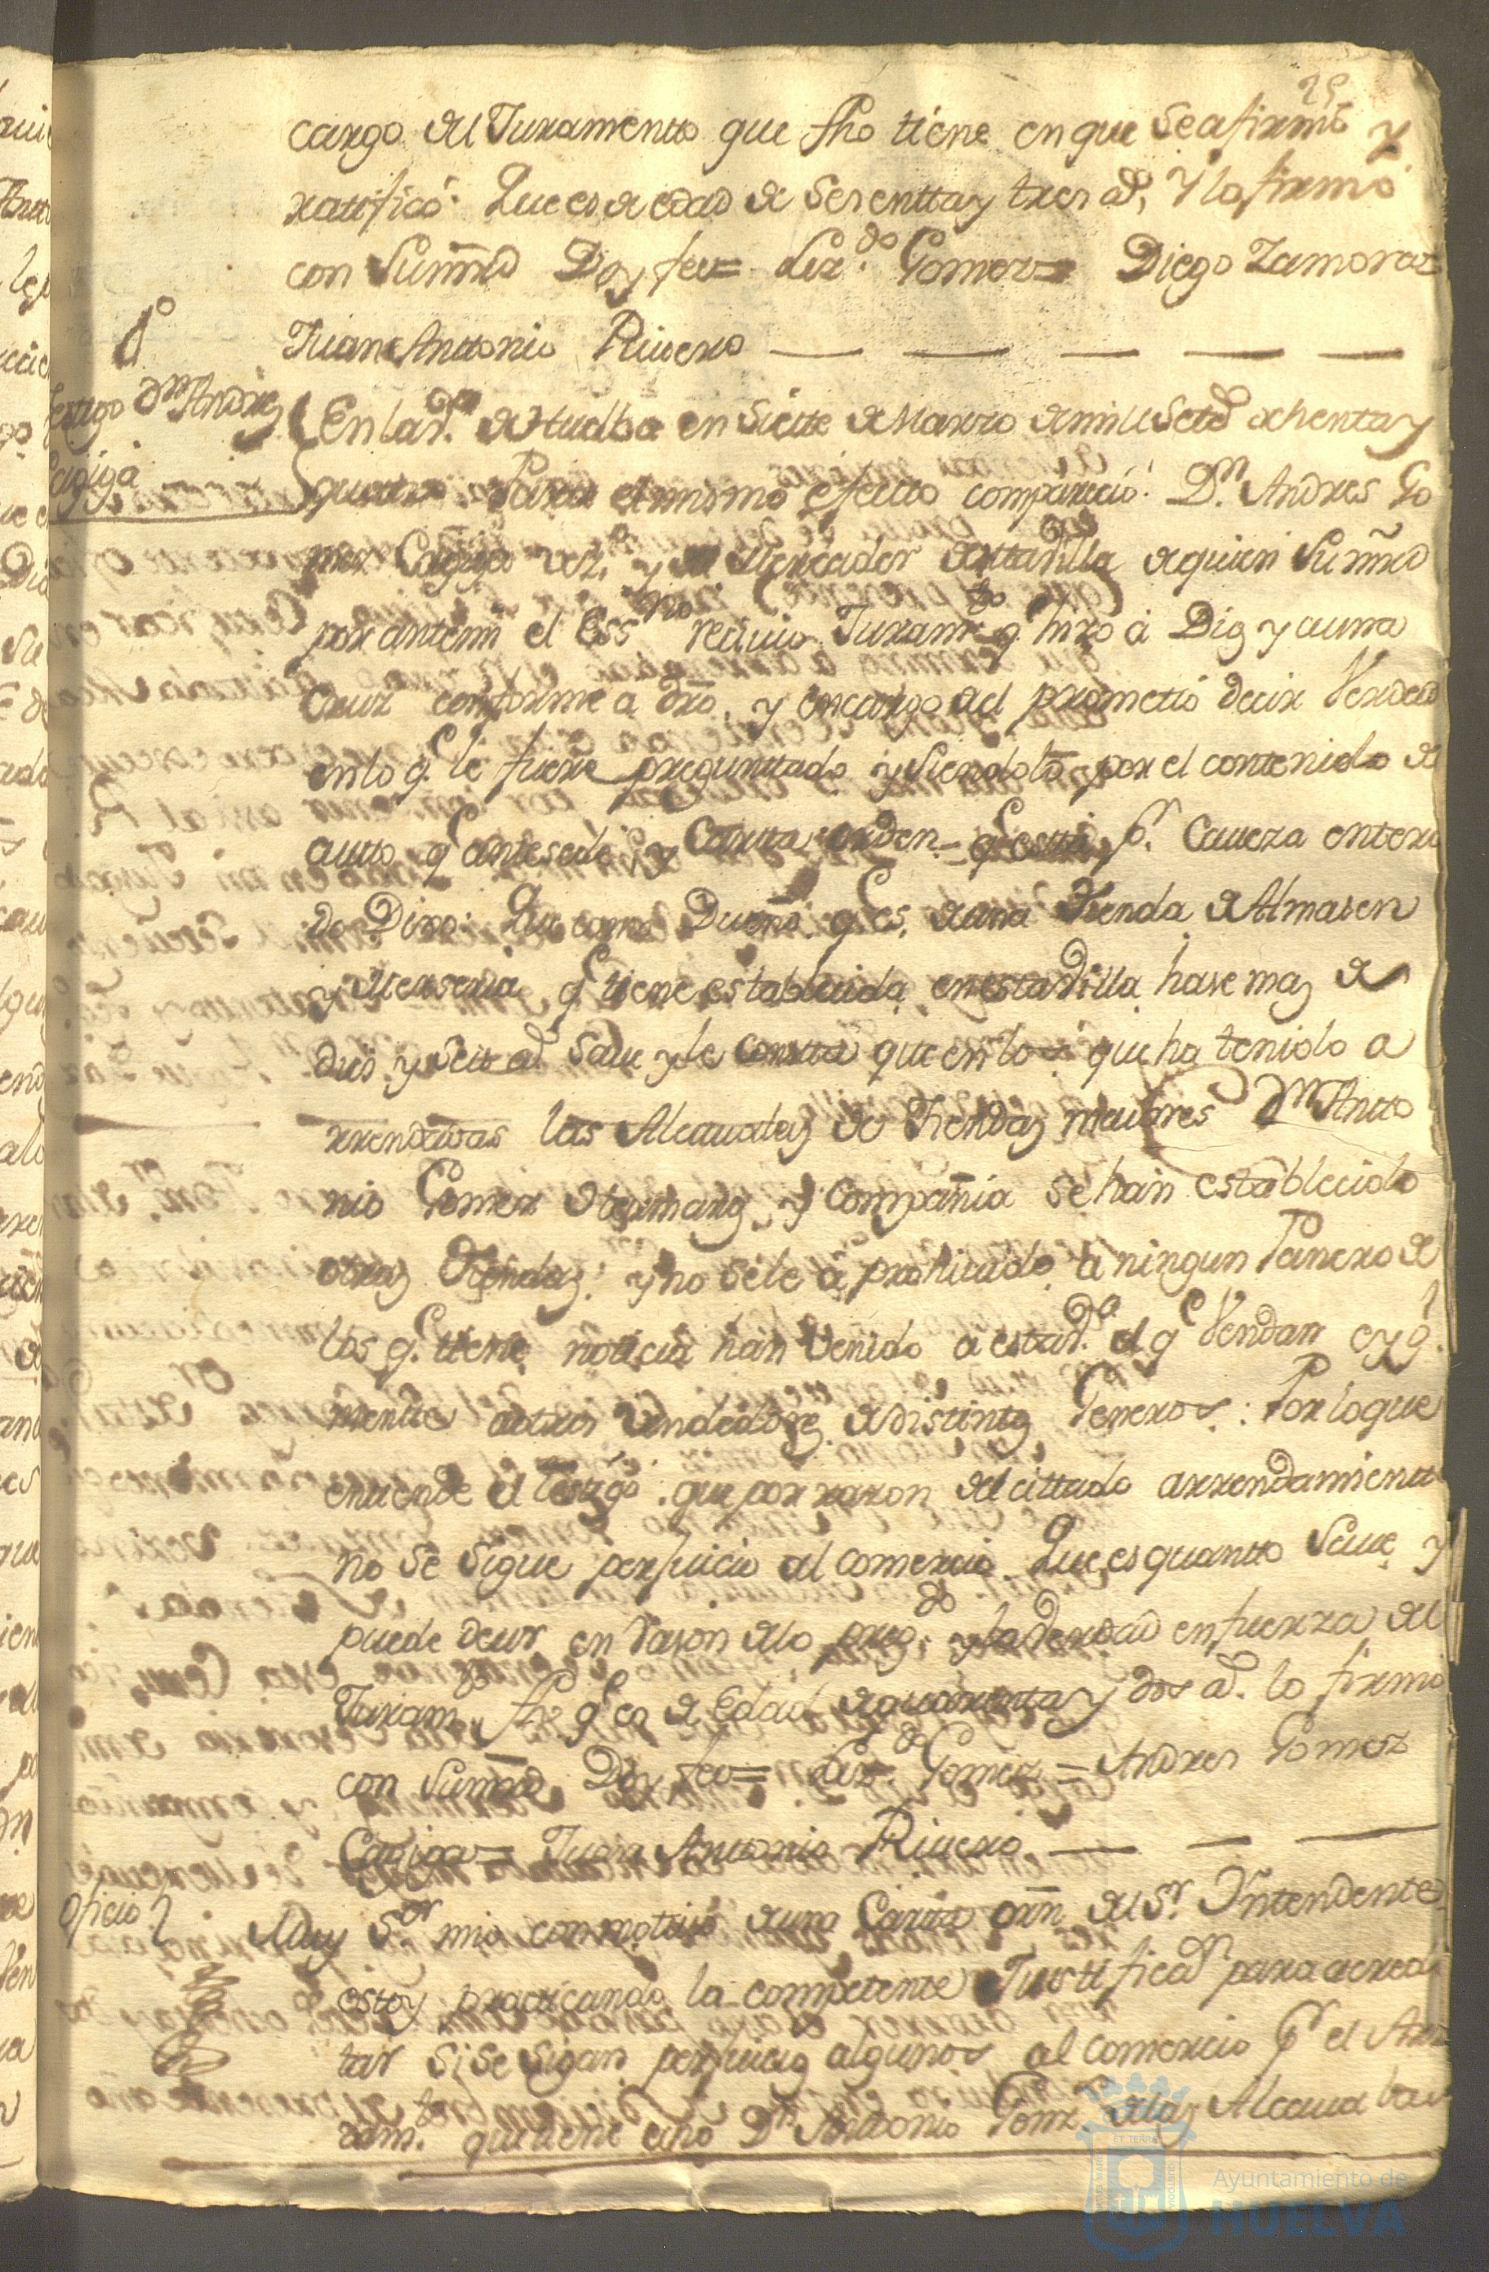 25
cargo del Juramento que fho tiene en que se afirmó y
ratificó. Que es de edad de sesentta y tres ad, y lo firmó
con Su mrd Doy fee= Lizdo. Gomez= Diego Zamora=
Juan Anttonio Rivero
6º
testigo Dn Andres
Cagiga
En la Va. de Huelba en Siette de Marzo de mill Setd ochenta y
quatro Para el mismo efectto comparecio Dn. Andres Go
mez Cagiga vezo. y Mercader de esta Villa de quien Su mrd
por antemi el Essno recivio Juramto q hizo á Dios y a una
Cruz conforme a dro, y en cargo del prometió decir Verdad
en lo q. le fuere preguntado y siendolo por el contenido de
autto qe antesede, y Cartta orden qe esta pr. Caveza entera
do Dixo: Que como Dueño qe es, de una Tienda de Almasen
y Merseria qe tiene establecida en esta Villa hase mas de
dies y seis ad save y le constta que en los que ha tenido a
rrendadas las Alcavalas de Tiendas maiores Dn Antto
nio Gomez y compañia se han establecido
otras Tiendas: y no se le á prohivido a ningun Panero de
los q. tiene noticia han venido a esta Va. el qe Vendan
mentte otros vendedores de distintos Generos: Por lo que
entiende el testigo. que por razon del cittado arrendamientto
no se sigue perjuicio al comercio. Que es quantto save y
puede decir en rason de lo pregdo. y la verdad en fuerza del
Juramto fho qe es de Edad de quarenta y dos ad. lo firmó
con Su mrd Doy fee= Lizdo. Gomez= Andres Gomez
Cagiga= Juan Anttonio Rivero
Oficio
Muy Sor mio con motivo de una Cartta orn del Sr. Yntendente
estoy practicando la competente Justificaon para acredi
tar si se sigan perjuicios algunos al comercio pr el Arren
damto. que tiene echo Dn Anttonio Gomz de las Alcavalas
Ayuntamiento de
HUELVA